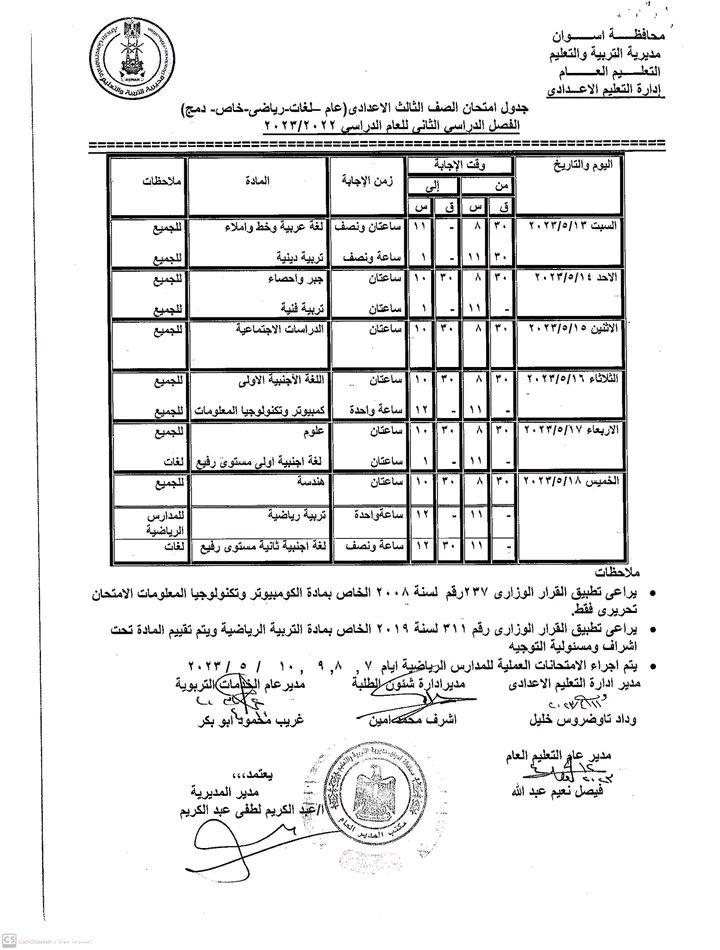 محافظة اسوان
مديرية التربية والتعليم
التعليم العام
إدارة التعليم الاعدادى
جدول امتحان الصف الثالث الاعدادى(عام –لغات-رياضى-خاص- دمج)
الفصل الدراسي الثانى للعام الدراسي ٢٠٢٣/٢٠٢٢
اليوم والتاريخ وقت الإجابة زمن الإجابة المادة ملاحظات
من إلى
ق س ق س
السبت ٢٠٢٣/٥/١٣ ٣٠ ٨ - ١١ ساعتان ونصف لغة عربية وخط واملاء للجميع
٣٠ ١١ - ١ ساعة ونصف تربية دينية للجميع
الاحد ٢٠٢٣/٥/١٤ ٣٠ ٨ ٣٠ ١٠ ساعتان جبر واحصاء للجميع
- ١١ - ١ ساعتان تربية فنية للجميع
الاثنين ٢٠٢٣/٥/١٥ ٣٠ ٨ ٣٠ ١٠ ساعتان الدراسات الاجتماعية للجميع
الثلاثاء ٢٠٢٣/٥/١٦ ٣٠ ٨ ٣٠ ١٠ ساعتان اللغة الأجنبية الاولى للجميع
- ١١ - ١٢ ساعة واحدة كمبيوتر وتكنولوجيا المعلومات للجميع
الاربعاء ٢٠٢٣/٥/١٧ ٣٠ ٨ ٣٠ ١٠ ساعتان علوم للجميع
- ١١ - ١ ساعتان لغة اجنبية اولى مستوى رفيع لغات
الخميس ٢٠٢٣/٥/١٨ ٣٠ ٨ ٣٠ ١٠ ساعتان هندسة للجميع
- ١١ - ١٢ ساعةواحدة تربية رياضية للمدارس
الرياضية
- ١١ ٣٠ ١٢ ساعة ونصف لغة اجنبية ثانية مستوى رفيع لغات
ملاحظات
• يراعى تطبيق القرار الوزارى ٢٣٧رقم لسنة ٢٠٠٨ الخاص بمادة الكومبيوتر وتكنولوجيا المعلومات الامتحان
تحريرى فقط.
• يراعى تطبيق القرار الوزارى رقم ٣١١ لسنة ٢٠١٩ الخاص بمادة التربية الرياضية ويتم تقييم المادة تحت
اشراف ومسئولية التوجيه
• يتم اجراء الامتحانات العملية للمدارس الرياضية ايام ٧, ٨, ٩, ١٠ / ٥ / ٢٠٢٣
مدير ادارة التعليم الاعدادى مديرادارة شئون الطلبة مديرعام الخدمات التربوية
وداد تاوضروس خليل اشرف محمد امين غريب محمود ابو بكر
مدير عام التعليم العام
فيصل نعيم عبد الله
يعتمد,,,
مدير المديرية
ا/عبد الكريم لطفى عبد الكريم
مكتب المدير العام
CS CamScanner